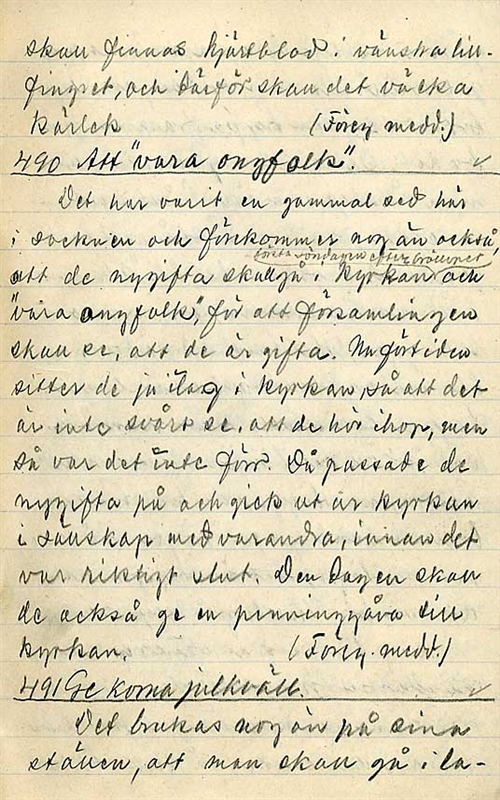 skall finnas hjärtblod i vänstra lill-
fingret, och därför skall det väcka
kärlek (Föreg. medd.)
490 Att "vara ongfolk".
Det har varit en gammal sed här
i socknen och förekommer nog än också,
första söndagen efter bröllopet
att de nygifta skall gå i kyrkan och
"vara ongfolk", för att församlingen
skall se, att de är gifta. Nu för tiden
sitter de ju ilag i kyrkan, så att det
är inte svårt se, att de hör ihop, men
så var det inte förr. Då passade de
nygifta på och gick ut ur kyrkan
i sällskap med varandra, innan det
var riktigt slut. Den dagen skall
de också ge en penninggåva till
kyrkan. (Föreg. medd.)
491 Ge korna julkväll.
Det brukas nog än på sina
ställen, att man skall gå i la-